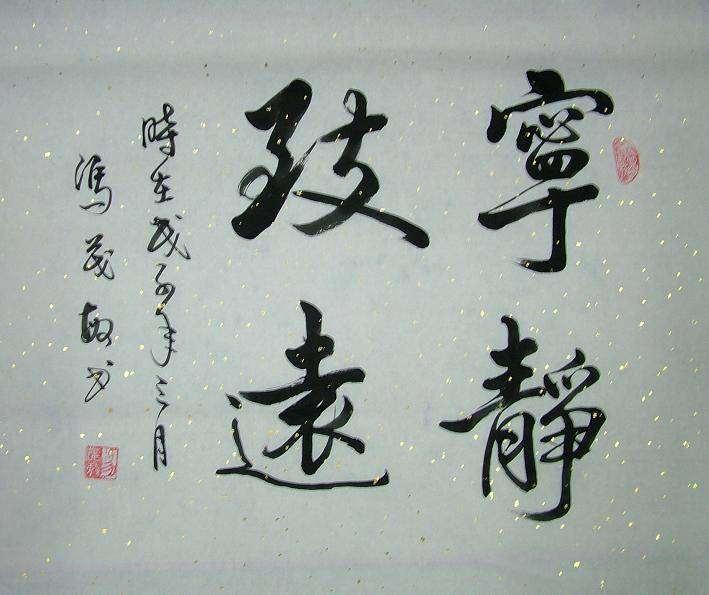 寧靜
致遠
時在戊子年三月
馮茂敏书